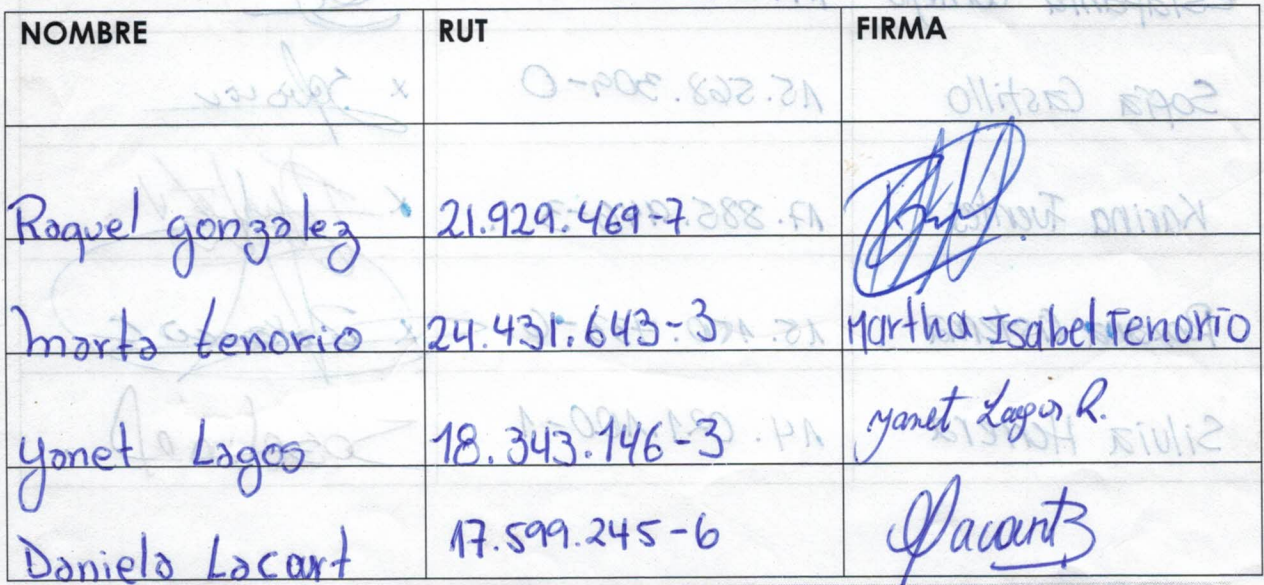 NOMBRE RUT FIRMA
Raquel gonzalez 21.929.469-7
marta tenorio 24.431.643-3 Martha Isabel Tenorio
yanet Lagos 18.343.146-3 yanet Lagos R.
Daniela Lacart 17.599.245-6